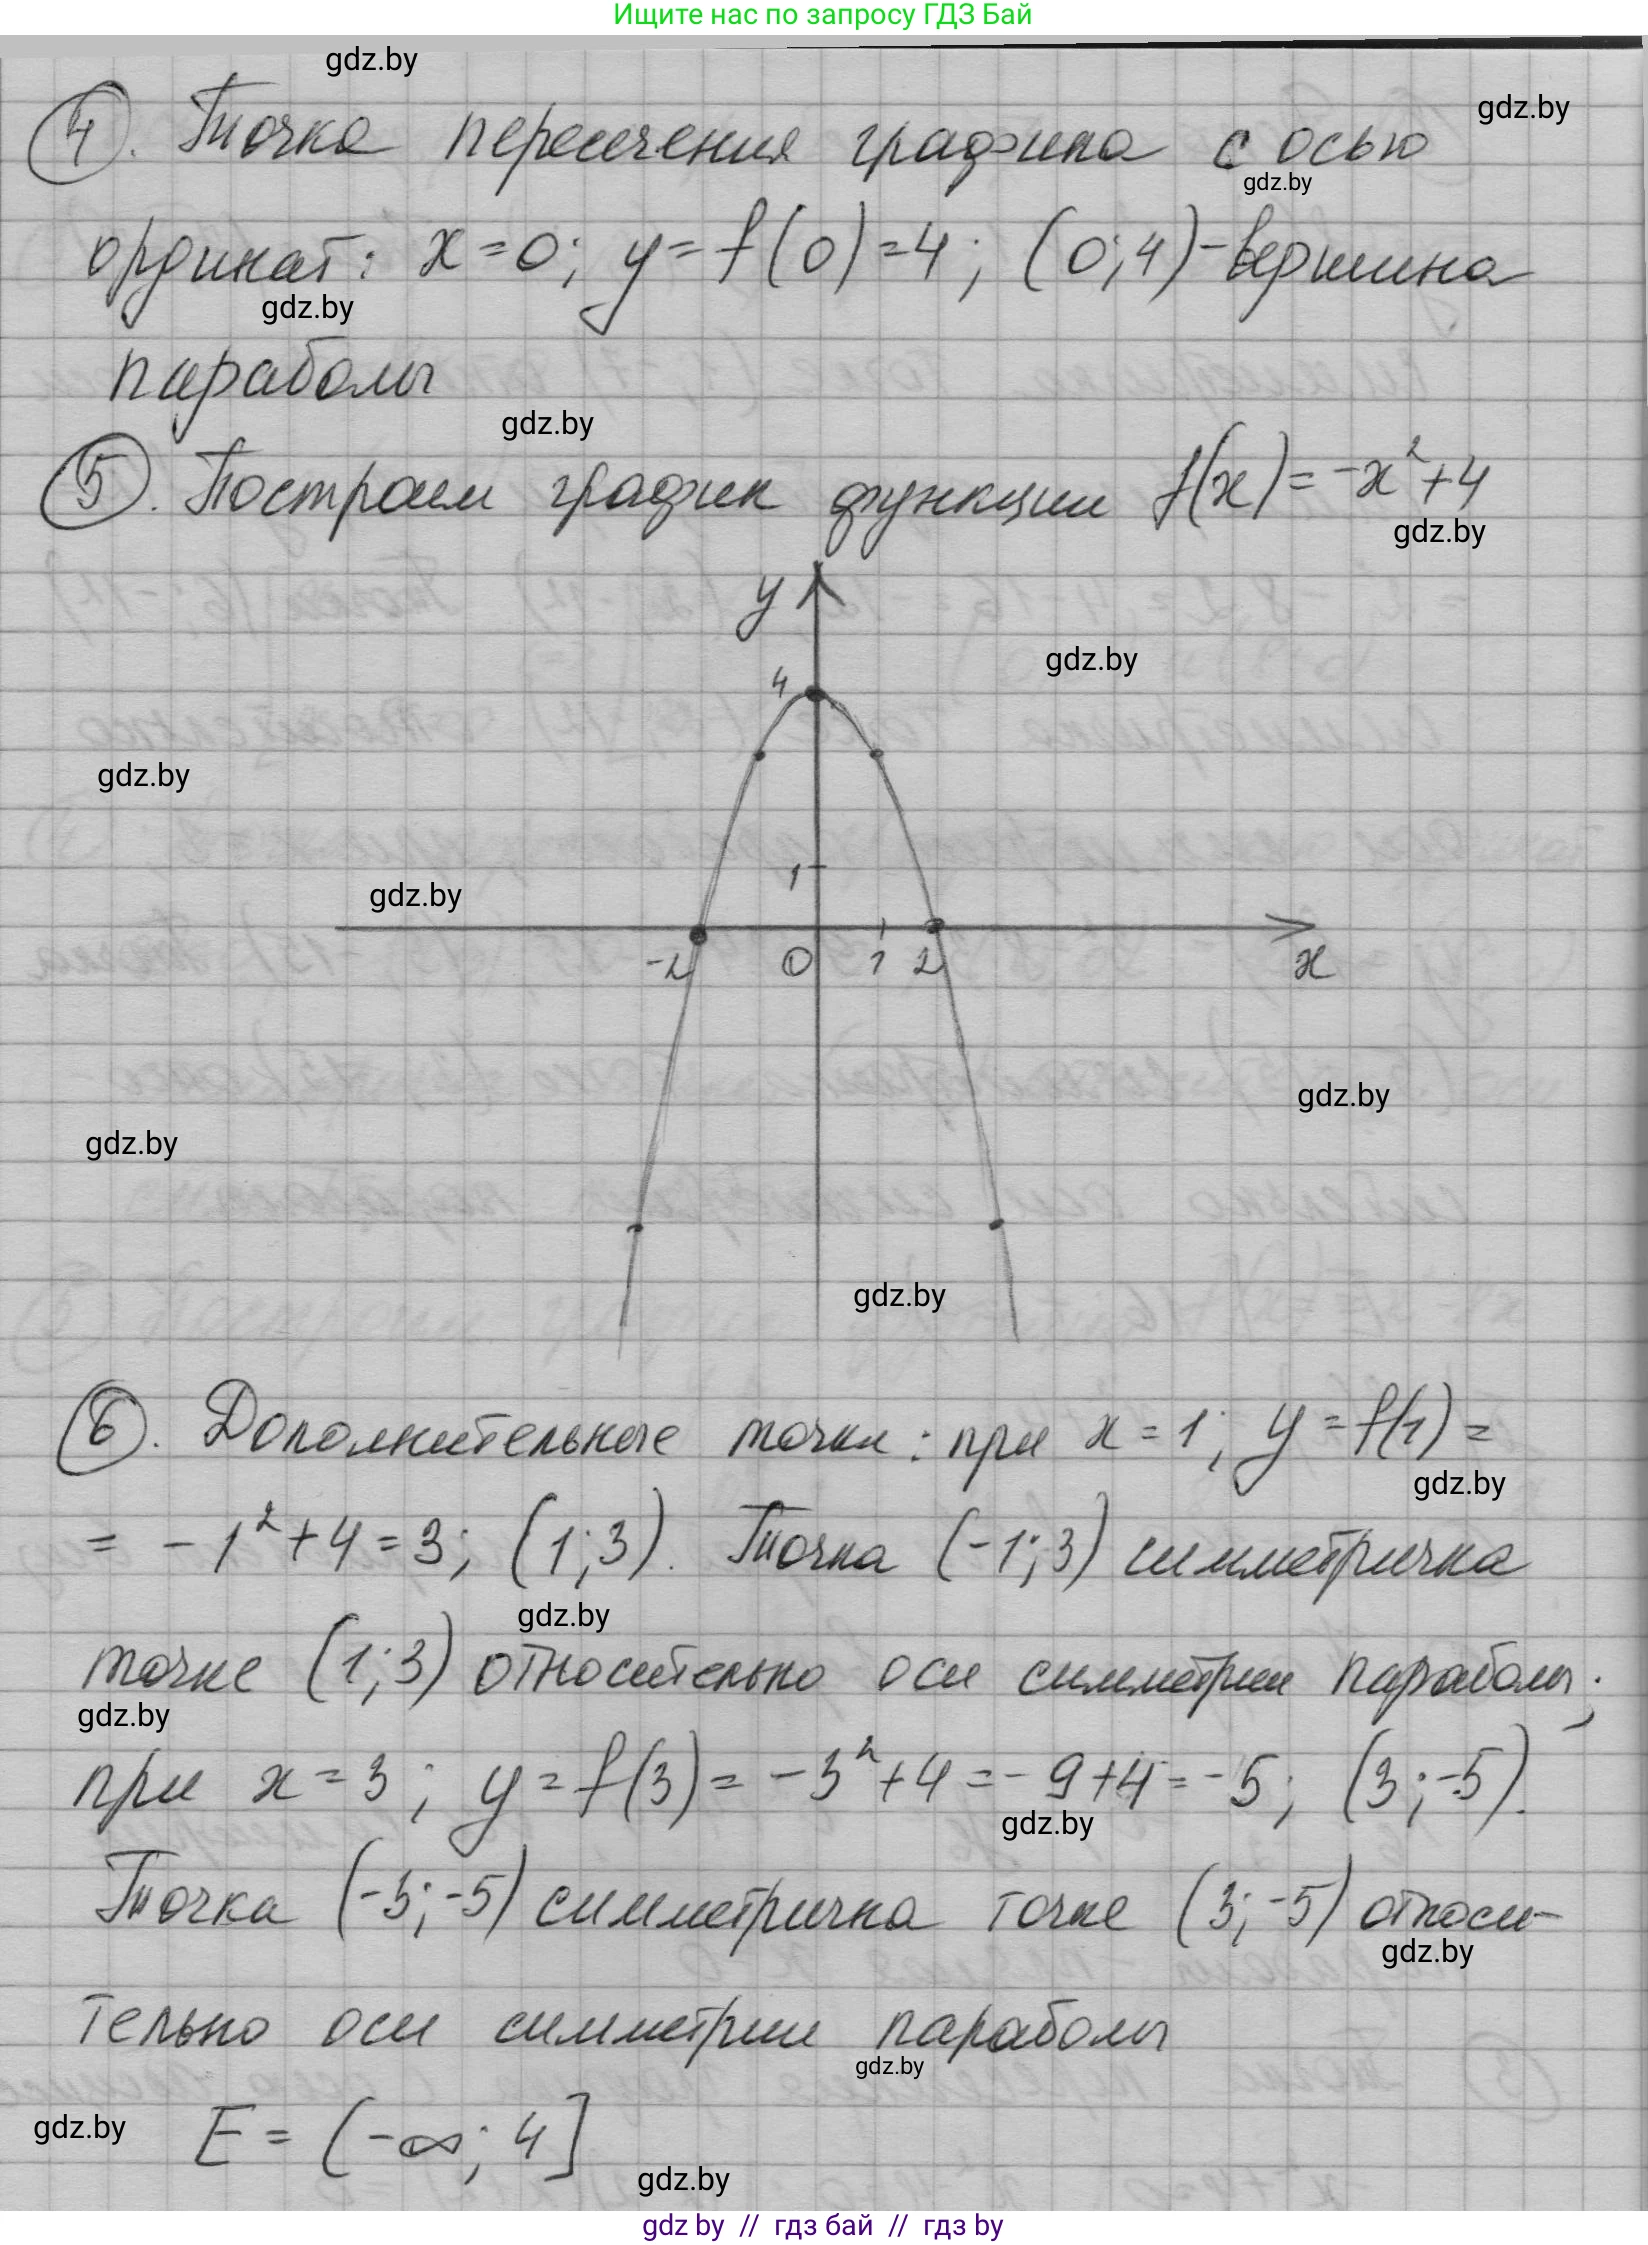 Ищите нас по запросу ГДЗ Бай
gdz.by
gdz.by
4. Точка пересечения графика с осью
gdz.by
ординат: x=0; y=f(0)=4; (0;4)-вершина
gdz.by
параболы
gdz.by
5. Построим график функции f(x)=-x²+4
gdz.by
y
gdz.by
4
gdz.by
1
gdz.by
-2 0 1 2 x
gdz.by
gdz.by
gdz.by
6. Дополнительные точки: при x=1; y=f(1)=
gdz.by
= -1²+4=3; (1;3). Точка (-1;3) симметрична
gdz.by
точке (1;3) относительно оси симметрии параболы;
gdz.by
при x=3; y=f(3)=-3²+4=-9+4=-5; (3;-5).
gdz.by
Точка (-3;-5) симметрична точке (3;-5) относи-
gdz.by
тельно оси симметрии параболы
gdz.by
gdz.by
E=(-∞;4]
gdz.by
gdz by // гдз бай // гдз by